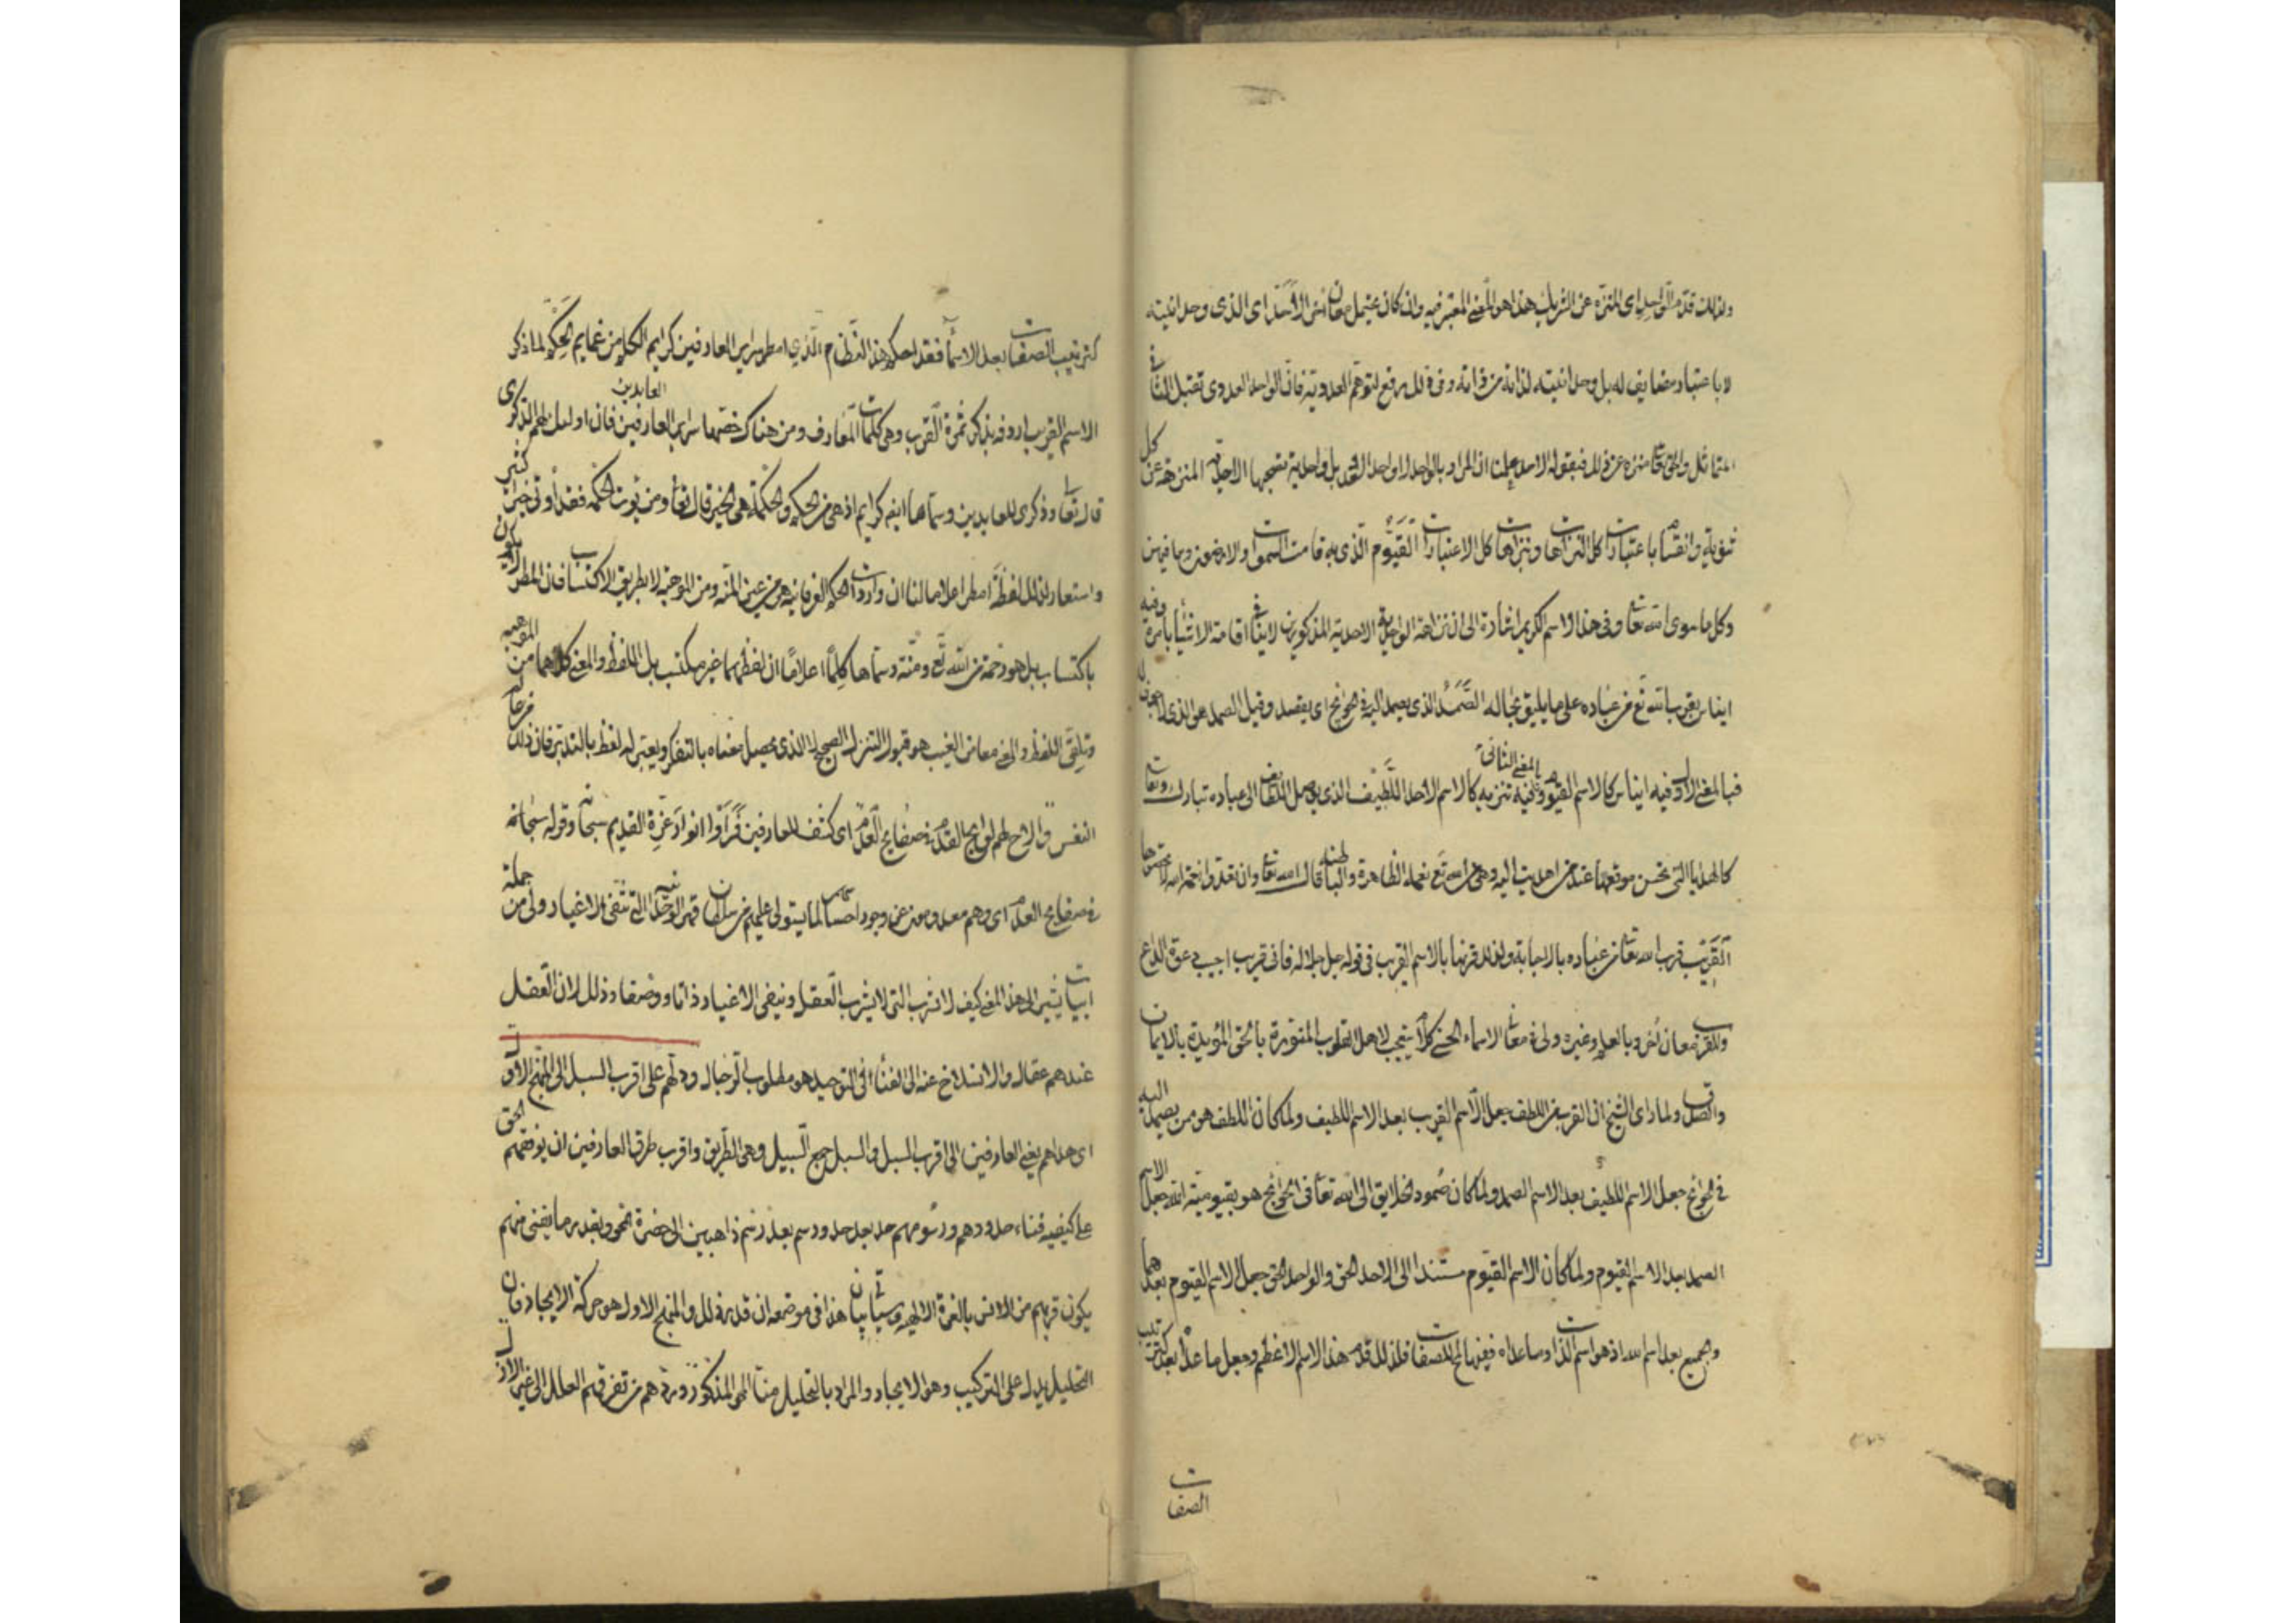 ولذلك قدّم الواحد اى المنزه عن الشريك هذا هو المعنى المعتبر فيه وان كان يحتمل معان اُخر الاحد اى الذى وحدانيته
لا باعتبار مضايف له بل وحدانيته لذاته من ذاته وفى ذلك رفع لتوهم العددية فان الواحد العددى تقبل الثانى
المتماثل والحق تعالى منزه عن ذلك فبقوله الاحد علمنا ان المراد بالواحد لا واحد العدد بل واحدية تصحبها الاحدية المنزهة عن كل
ثنوية وانقسام باعتبارات كل التنزلات وتنزلات كل الاعتبارات القيّوم الذى به قامت السموات والارضون وما فيهن
وكل ما سوى الله تعالى وفى هذا الاسم الكريم اشارة الى ان نزاهة الواحدية الاحدية المذكورين لا ينافى اقامة الاشياء باسره وفيه
ايناس بقرب الله تع من عباده على ما يليق بجلاله الصَّمَدُ الذى يصمد اليه فى الحوائج اى يقصد وقيل الصمد هو الذى لا جوف له
فبالمعنى الاول فيه ايناس كالاسم القيوم وبالمعنى الثانى فيه تنزيه كالاسم الاحد اللّطيف الذى يوصل الطافه الى عباده تبارك وتعالى
كالهدايا التى يحسن موقعها عند من اهديت اليه وهى من الله تع نعمه الظاهرة والباطنة قال الله تعالى وان تعدوا نعمة الله لا تحصوها
القَرِيب قرب الله تعالى من عباده بالاجابة ولذلك قرنها بالاسم القريب فى قوله جل جلاله فانى قريب اجيب دعوة الداع
وللقرب معان اُخر وبالعلم وغيره ولى فى معانى الاسماء الحسنى كلام يستجب لاهل القلوب المنورة بالحق المؤيدة بالايمان
والصدق ولما راى الشيخ ان القرب من اللطف جعل الاسم القريب بعد الاسم اللطيف ولما كان اللطف هو من يصمد اليه
فى الحوائج جعل الاسم اللطيف بعد الاسم الصمد ولما كان صمود الخلايق الى الله تعالى فى الحوائج هو بقيوميته الله جعل الاسم
الصمد بعد الاسم القيوم ولما كان الاسم القيوم مستندا الى الاحد الحق والواحد الحق جعل الاسم القيوم بعدهما
والجميع بعد اسم الله اذ هو اسم الذات وما عداه فيغنها الى الصفات فلذلك قدّم هذا الاسم الاعظم وجعل ما عداه بعده كترتيب
الصفات
كترتيب الصفات بعد الاسماء فقد احكم هذا النظام الّذى امطر سراير العارفين كرايم الكلم من غمايم الحِكَم لما ذكر
الاسم القريب اردفه بذكر ثمرة القرب وهى كلمات المعارف ومن هناك خصّها سراير العارفين العابدين فان اولئك لهم الذكرى
قال تعالى وذكرى للعابدين وسماها ايضا كرايم اذ هى من الحكم والحكمة هى الخير قال تعالى ومن يؤت الحكمة فقد اوتى خيرا كثيرا
واستعار لذلك لفظة امطر اعلاما لنا ان واردات الحكم العرفانية هى من عين المنّه ومن الموهبة لا بطريق الاكتساب فان المطر لا يكون
باكتساب بل هو رحمة من الله تع ومنّة وسمّاها كلِمًا اعلامًا ان لفظها غير مكتسب بل اللفظ والمعنى كلاهما من الموهبة
وتلقى اللفظ والمعنى معا من الغيب هو قبول التنزل الصحيح لا الذى يحصل معناه بالتفكر ويعتبر له لفظ بالتدبر فان ذلك من عالم
النفس والاح لهم لوايح القدم فى صفايح العدم اى كشف للعارفين فرَأَوْا انوار عزة القديم سبحانه وقوله سبحانه
فى صفايح العدم اى وهم معدومون عن وجود احساسهم لما يتولى عليهم من سلطان قهر الوحدانية التى تنفى الاغيار ولى من جملة
ابيات يشير الى هذا المعنى كيف لا نشرب التى لا يشرب العقل وتنفى الاغيار ذاتا ووصفا وذلك لان العقل
عندهم عقال والانسلاخ عنه الى الفناء فى التوحيد هو مطلوب الرجال ودلّهم على اقرب السبل الى المنهج الاول
اى هداهم يعنى العارفين الى اقرب السبل والسبل جمع السّبيل وهى الطّريق واقرب طرق العارفين ان يوقفهم الحق
على كيفية فناء حدودهم ورسومهم حد بعد حد ورسم بعد رسم ذاهبين الى حضرة المحو وبقدر ما يفنى منهم
يكون قربهم من الانس بالعزة الالهيه وسياتى بيان هذا فى موضعه ان قدر ذلك والمنهج الاول هو حركة الايجاد فان
التحليل يدل على التركيب وهو الايجاد والمراد بالتحليل هنا المحو المذكور وردّهم من تفرق العلل الى عين الازل